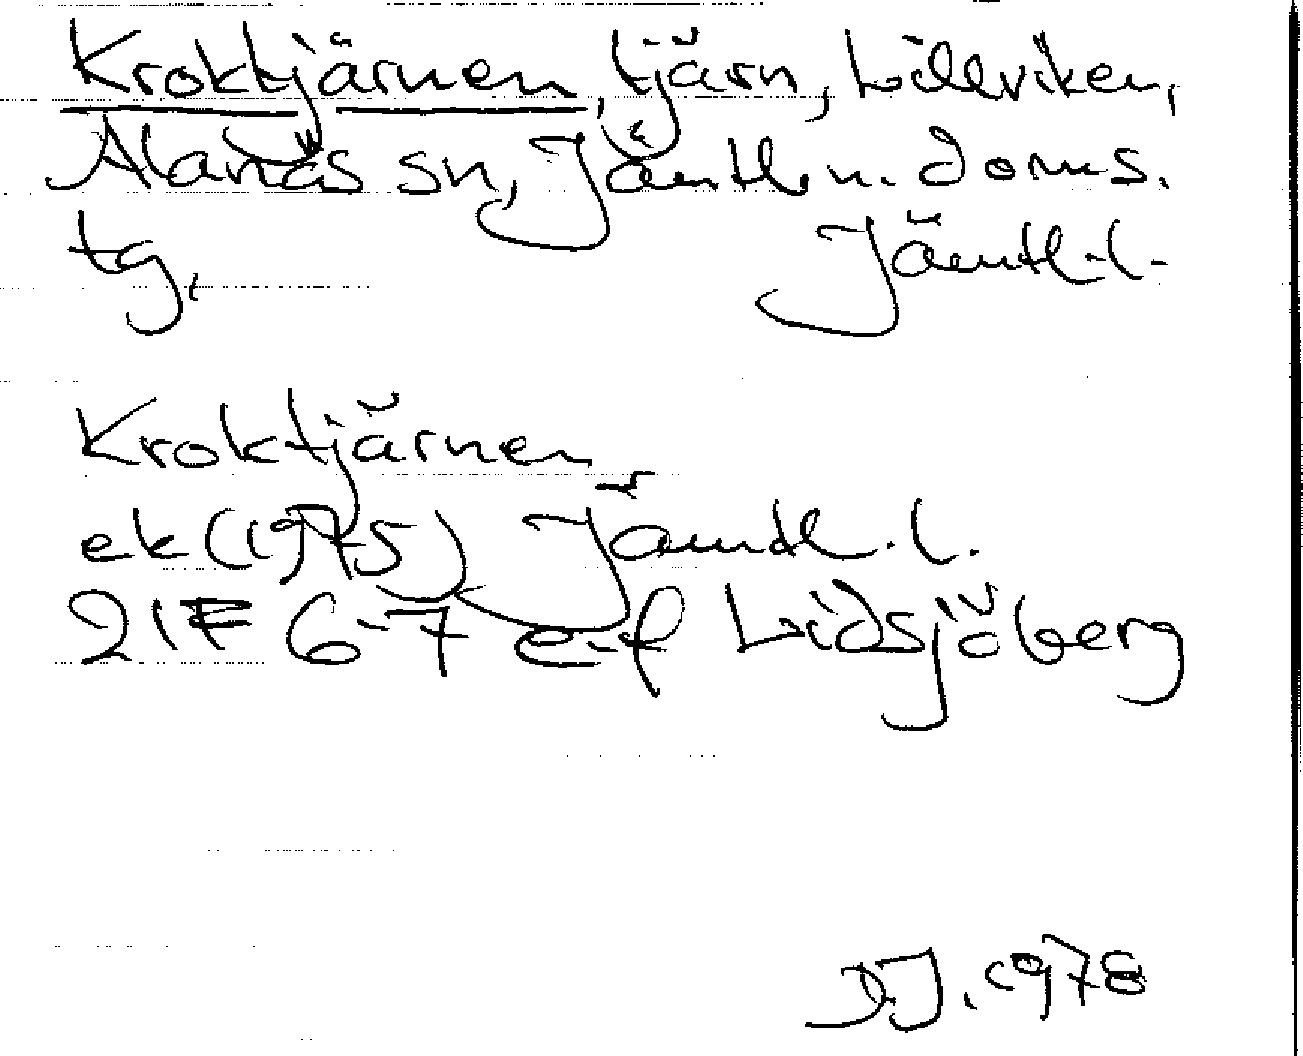 Kroktjärnen, tjärn, Lillviken,
Alanäs sn, Jämtl. n. doms.
tg. Jämtl. l.
Kroktjärnen
ek (1975) Jämtl. l.
21F 6-7 e-f Lidsjöberg
DJ. 1978